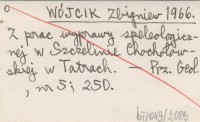 WÓJCIK Zbigniew 1966.
Z prac wyprawy speleologicz-
nej w Szczelinie Chochołow-
skiej w Tatrach. — Prz. Geol.
, nr 5; 250.